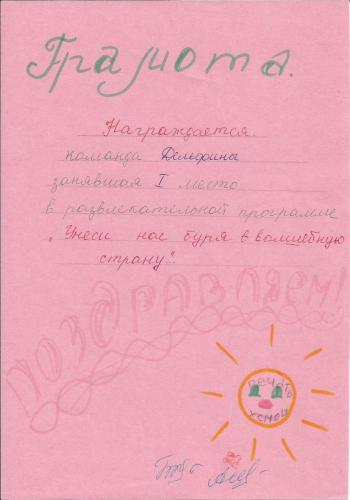 Грамота.
Награждается
команда Дельфины
занявшая I место
в развлекательной программе
„Унеси нас буря в волшебную
страну".
ПОЗДРАВЛЯЕМ!
печать